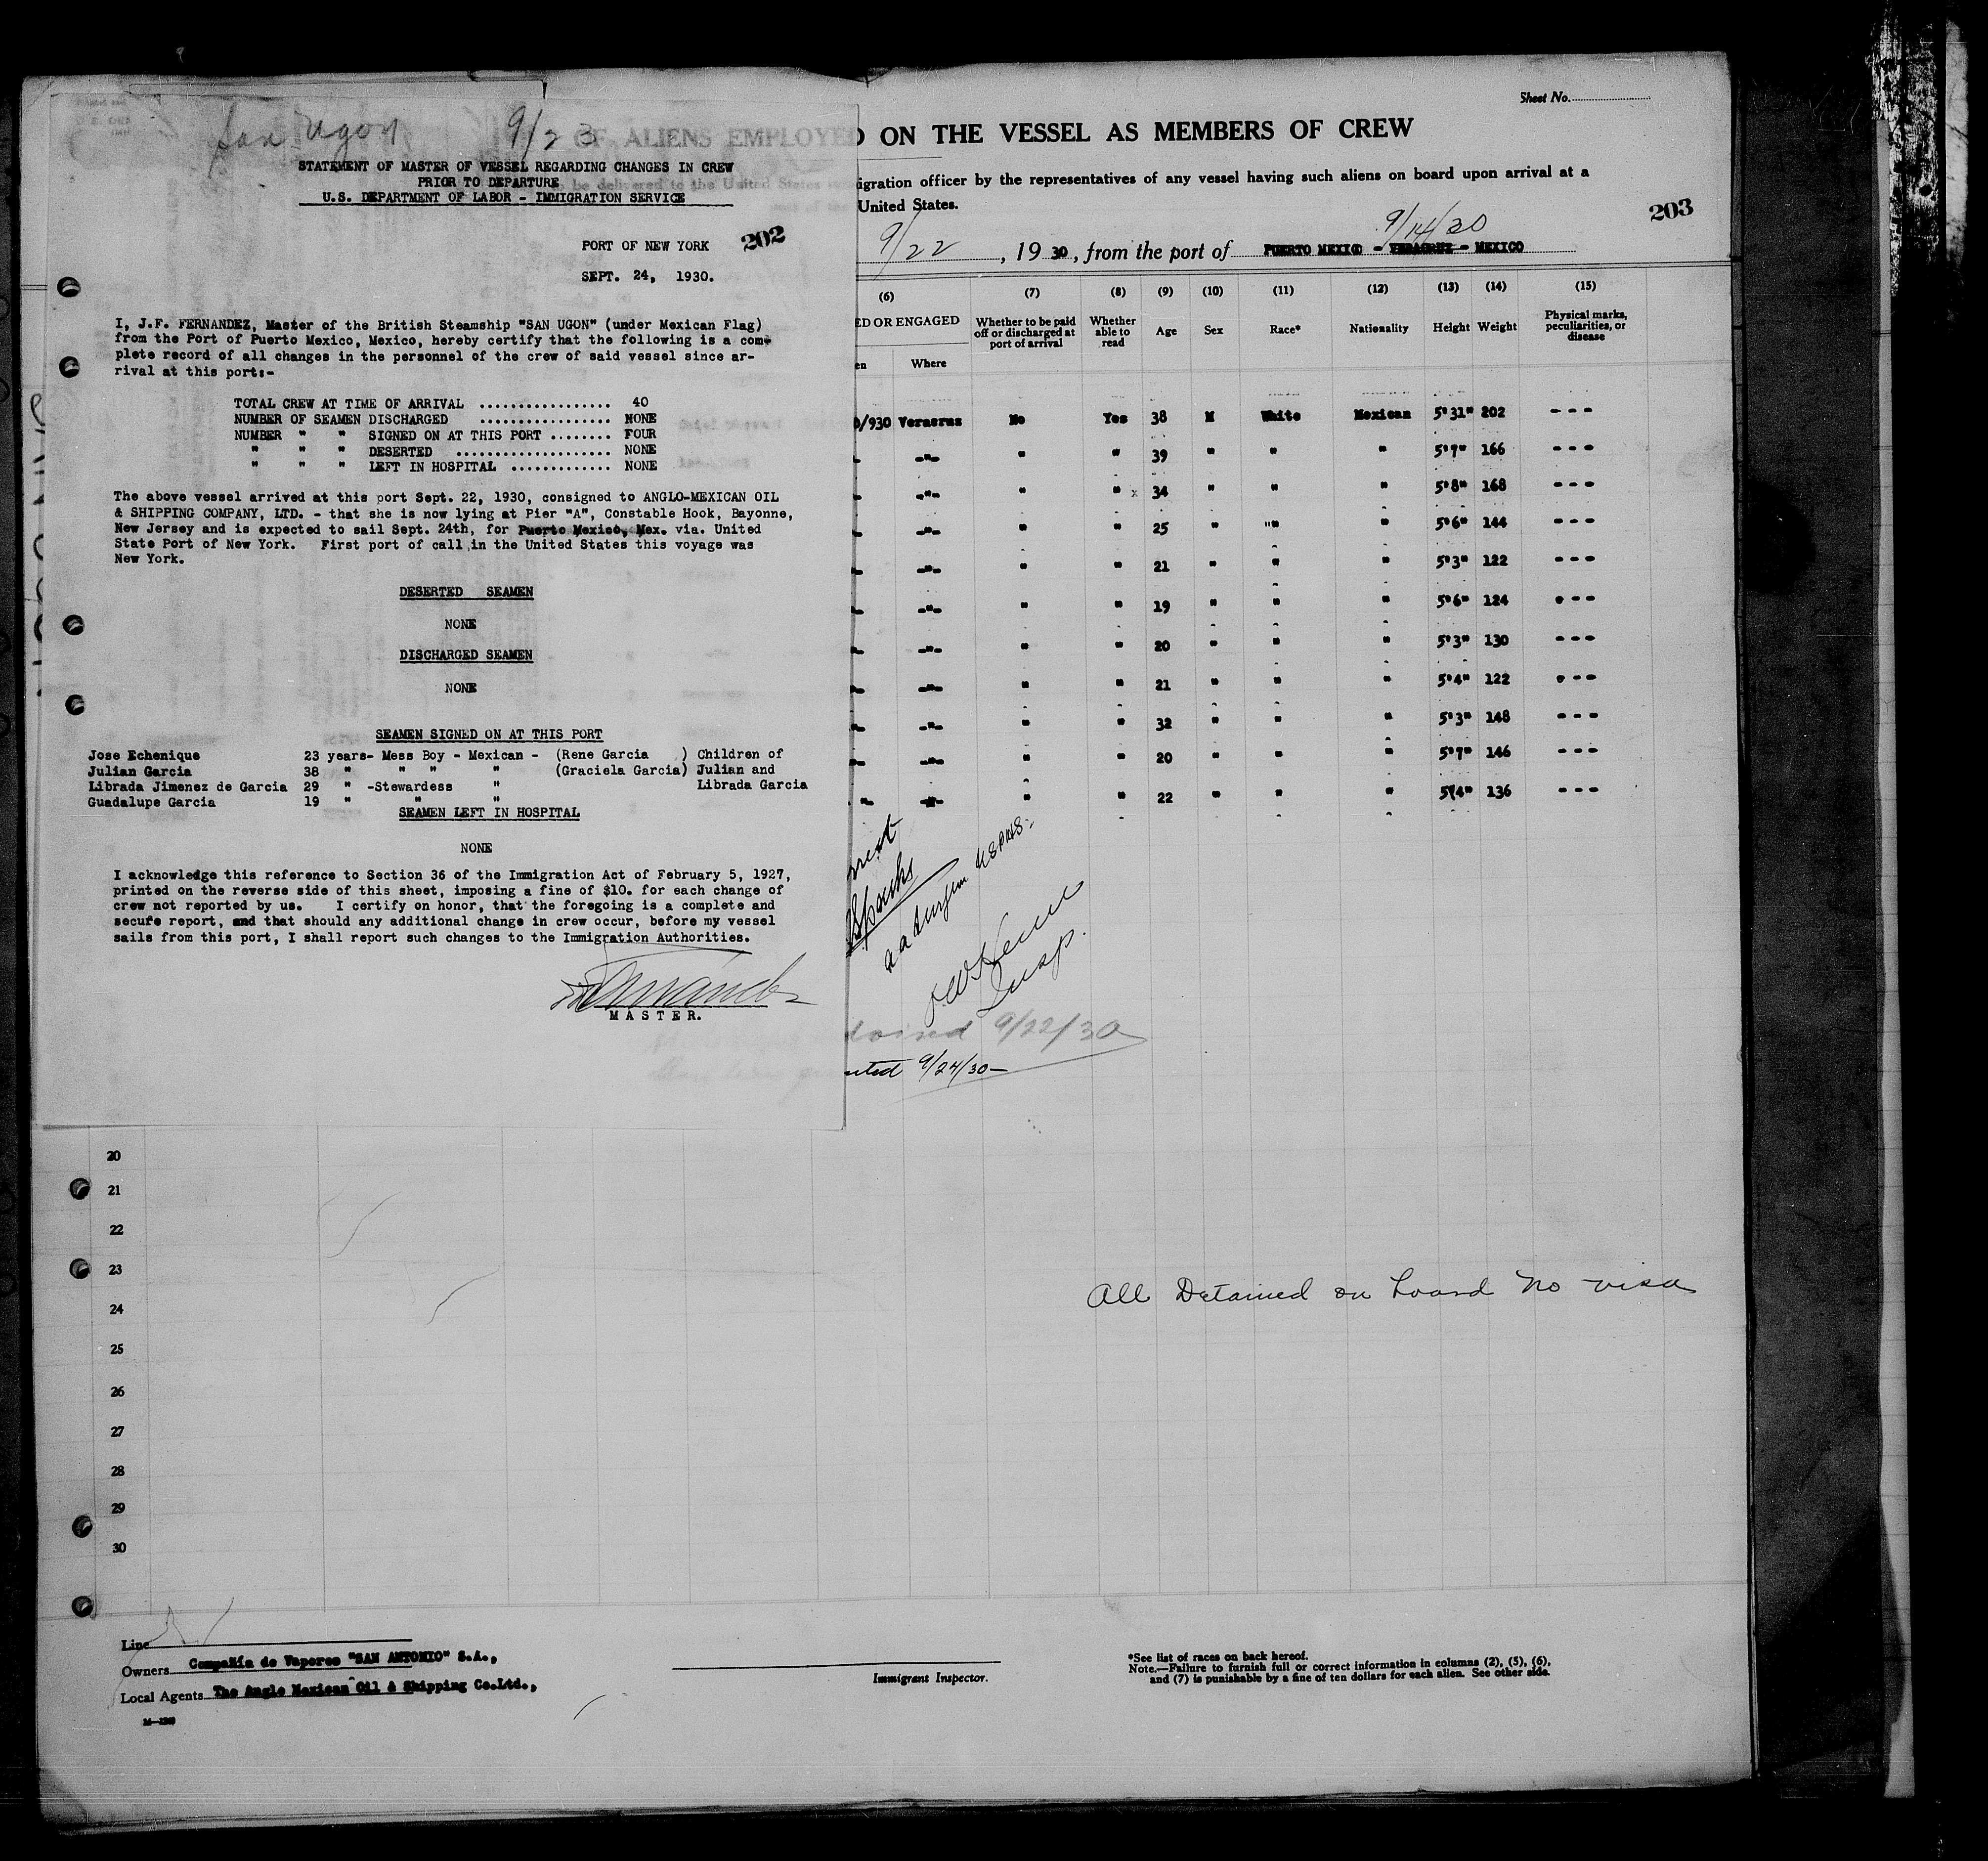 San Ugon 9/23
OF ALIENS EMPLOYED
STATEMENT OF MASTER OF VESSEL REGARDING CHANGES IN CREW
PRIOR TO DEPARTURE
U.S. DEPARTMENT OF LABOR - IMMIGRATION SERVICE
PORT OF NEW YORK 202
SEPT. 24, 1930.
I, J.F. FERNANDEZ, Master of the British Steamship "SAN UGON" (under Mexican Flag)
from the Port of Puerto Mexico, Mexico, hereby certify that the following is a com-
plete record of all changes in the personnel of the crew of said vessel since ar-
rival at this port:-
TOTAL CREW AT TIME OF ARRIVAL ................. 40
NUMBER OF SEAMEN DISCHARGED ................. NONE
NUMBER " " SIGNED ON AT THIS PORT ........ FOUR
" " " DESERTED .................... NONE
" " " LEFT IN HOSPITAL ............. NONE
The above vessel arrived at this port Sept. 22, 1930, consigned to ANGLO-MEXICAN OIL
& SHIPPING COMPANY, LTD. - that she is now lying at Pier "A", Constable Hook, Bayonne,
New Jersey and is expected to sail Sept. 24th, for Puerto Mexico, Mex. via. United
State Port of New York. First port of call in the United States this voyage was
New York.
DESERTED SEAMEN
NONE
DISCHARGED SEAMEN
NONE
SEAMEN SIGNED ON AT THIS PORT
Jose Echenique 23 years- Mess Boy - Mexican - (Rene Garcia ) Children of
Julian Garcia 38 " " " " (Graciela Garcia) Julian and
Librada Jimenez de Garcia 29 " -Stewardess " Librada Garcia
Guadalupe Garcia 19 " " "
SEAMEN LEFT IN HOSPITAL
NONE
I acknowledge this reference to Section 36 of the Immigration Act of February 5, 1927,
printed on the reverse side of this sheet, imposing a fine of $10. for each change of
crew not reported by us. I certify on honor, that the foregoing is a complete and
secure report, and that should any additional change in crew occur, before my vessel
sails from this port, I shall report such changes to the Immigration Authorities.
MASTER.
Sheet No.
D ON THE VESSEL AS MEMBERS OF CREW
igration officer by the representatives of any vessel having such aliens on board upon arrival at a
United States.
203
9/14/30
9/22, 1930, from the port of PUERTO MEXICO - VERACRUZ - MEXICO
(6) (7) (8) (9) (10) (11) (12) (13) (14) (15)
ED OR ENGAGED Whether to be paid off or discharged at port of arrival Whether able to read Age Sex Race* Nationality Height Weight Physical marks, peculiarities, or disease
en Where
0/930 Veracruz No Yes 38 M White Mexican 5'31" 202 - - -
-"- " " 39 " " " 5'7" 166 - - -
-"- " " x 34 " " " 5'8" 168 - - -
-"- " " 25 " " " 5'6" 144 - - -
-"- " " 21 " " " 5'3" 122 - - -
-"- " " 19 " " " 5'6" 124 - - -
-"- " " 20 " " " 5'3" 130 - - -
-"- " " 21 " " " 5'4" 122 - - -
-"- " " 32 " " " 5'3" 148 - - -
-"- " " 20 " " " 5'7" 146 - - -
-"- " " 22 " " " 5'4" 136 - - -
Sparks
a a Surgeon USPHS.
Insp.
9/22/30
9/24/30
20
21
22
23
All Detained on board no visa
24
25
26
27
28
29
30
Line
Owners Compañía de Vapores "SAN ANTONIO" S.A.,
Local Agents The Anglo Mexican Oil & Shipping Co.Ltd.,
Immigrant Inspector.
*See list of races on back hereof.
Note.—Failure to furnish full or correct information in columns (2), (5), (6),
and (7) is punishable by a fine of ten dollars for each alien. See other side.